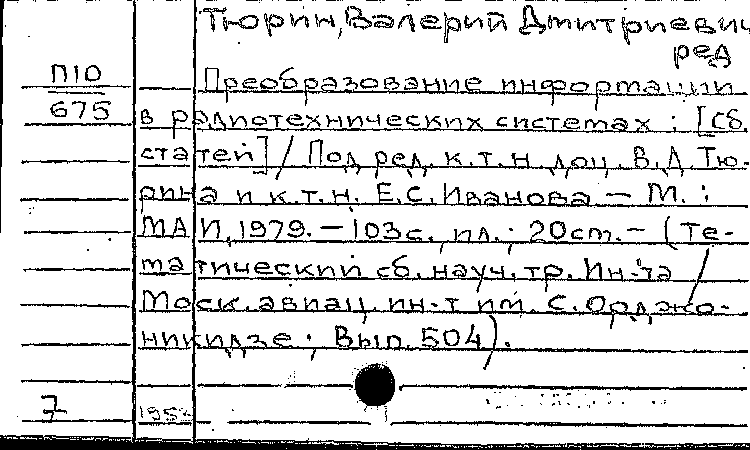 Тюрин, Валерий Дмитриевич
ред
П10
675
Преобразование информации
в радиотехнических системах : [Сб.
статей] / Под ред. к.т.н. доц. В.Д. Тю-
рина и к.т.н. Е.С. Иванова. — М. :
МАИ, 1979. — 103 с., ил.; 20 см. — (Те-
матический сб. науч. тр. Ин-та /
Моск. авиац. ин-т им. С. Орджо-
никидзе ; Вып. 504).
7